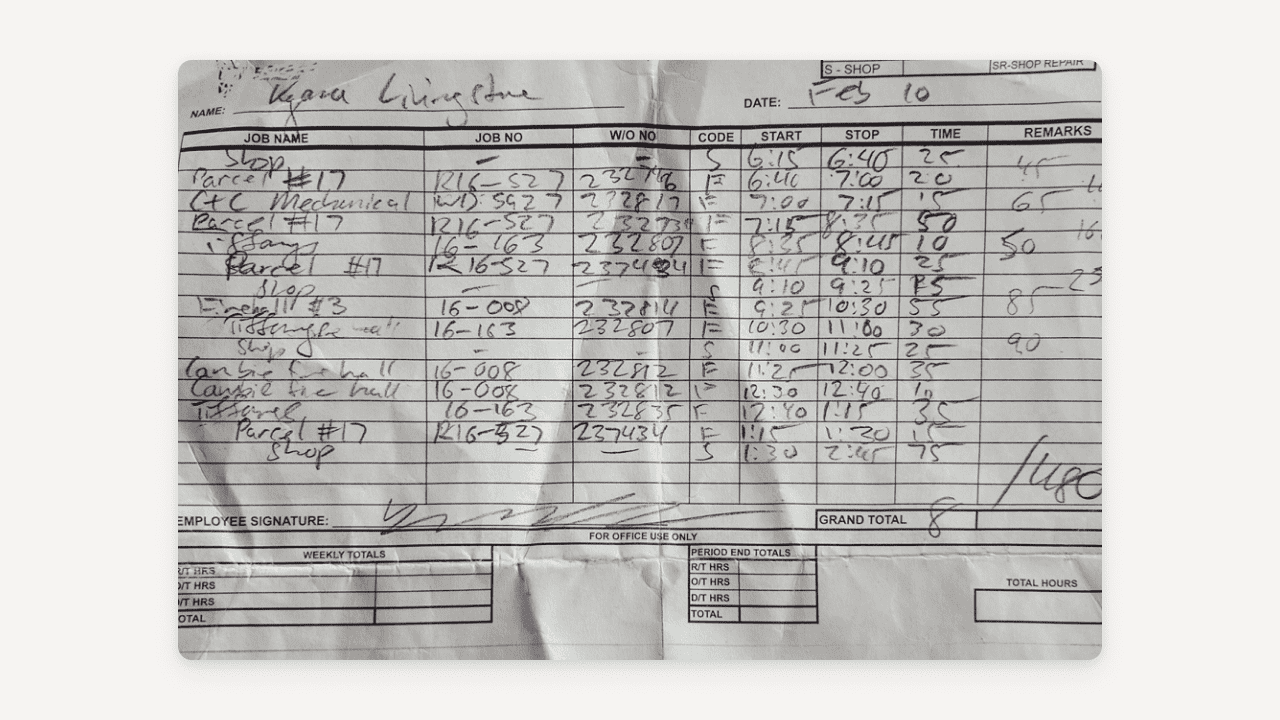 S - SHOP SR-SHOP REPAIR
NAME: Kyana Livingstone DATE: Feb 10
JOB NAME JOB NO W/O NO CODE START STOP TIME REMARKS
Shop - - S 6:15 6:40 25 45
Parcel #17 R16-527 F 6:40 7:00 20
C+C Mechanical 5927 232817 F 7:00 7:15 15 65
Parcel #17 R16-527 F 7:15 8:35 50
16-163 232807 F 8:35 8:45 10 50
Parcel #17 R16-527 F 8:45 9:10 25
Shop - S 9:10 9:25 25
#3 16-008 232814 F 9:25 10:30 55 85
16-163 232807 F 10:30 11:00 30
Shop - - S 11:00 11:25 25 90
Cambie fire hall 16-008 232812 F 11:25 12:00 35
Cambie fire hall 16-008 232812 F 12:30 12:40
16-163 232835 F 12:40 1:15 35
Parcel #17 R16-527 237434 F 1:15 1:30 15
Shop S 1:30 2:45 75
/480
EMPLOYEE SIGNATURE: GRAND TOTAL 8
FOR OFFICE USE ONLY
WEEKLY TOTALS PERIOD END TOTALS
R/T HRS R/T HRS
O/T HRS O/T HRS TOTAL HOURS
D/T HRS D/T HRS
TOTAL TOTAL